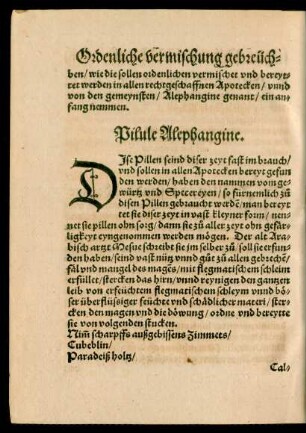 Ordenliche vermischung gebreüch-
ben/ wie die sollen ordenlichen vermischet vnd bereyt
tet werden in allen rechtgeschaffnen Apotecken/ vnnd
von den gemeynsten/ Alephangine genant/ ein an-
fang nemmen.
Pilule Alephangine.
DIse Pillen seind diser zeyt fast im brauch/
vnd sollen in allen Apotecken bereyt gefun
den werden/ haben den nammen vom ge-
würtz vnd Specereyen/ so fürnemlich zů
disen Pillen gebraucht werdē/ man bereyt
tet sie diser zeyt in vast kleyner form/ nen-
net sie pillen ohn sorg/ dann sie zů aller zeyt ohn gefär-
ligkeyt eyngenommen werden mögen. Der alt Ara-
bisch artzt Mesue schreibt sie jm selber zů/ soll sie erfun-
den haben/ seind vast nütz vnnd gůt zů allen gebreche/
fäl vnd mangel des magēs/ mit flegmatischem schleim
erfüllet/ stercken das hirn/ vnnd reynigen den gantzen
leib von erfeüchtem flegmatischem schleym vnnd bö-
ser überflüssiger feüchte vnd schädlicher materi/ ster-
cken den magen vnd die döwung/ ordne vnd bereytte
sie von volgenden stucken.
Nim̄ scharpffs außgebissens Zimmets/
Cubeblin/
Paradeiß holtz/
Cal-